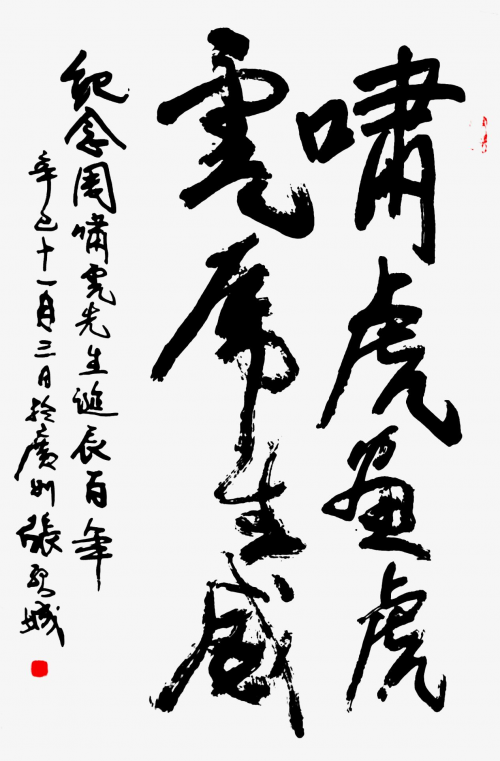 嘯虎畫虎
雲席生威
紀念周嘯雲先生誕辰百年
辛巳十一月三日於廣州張城